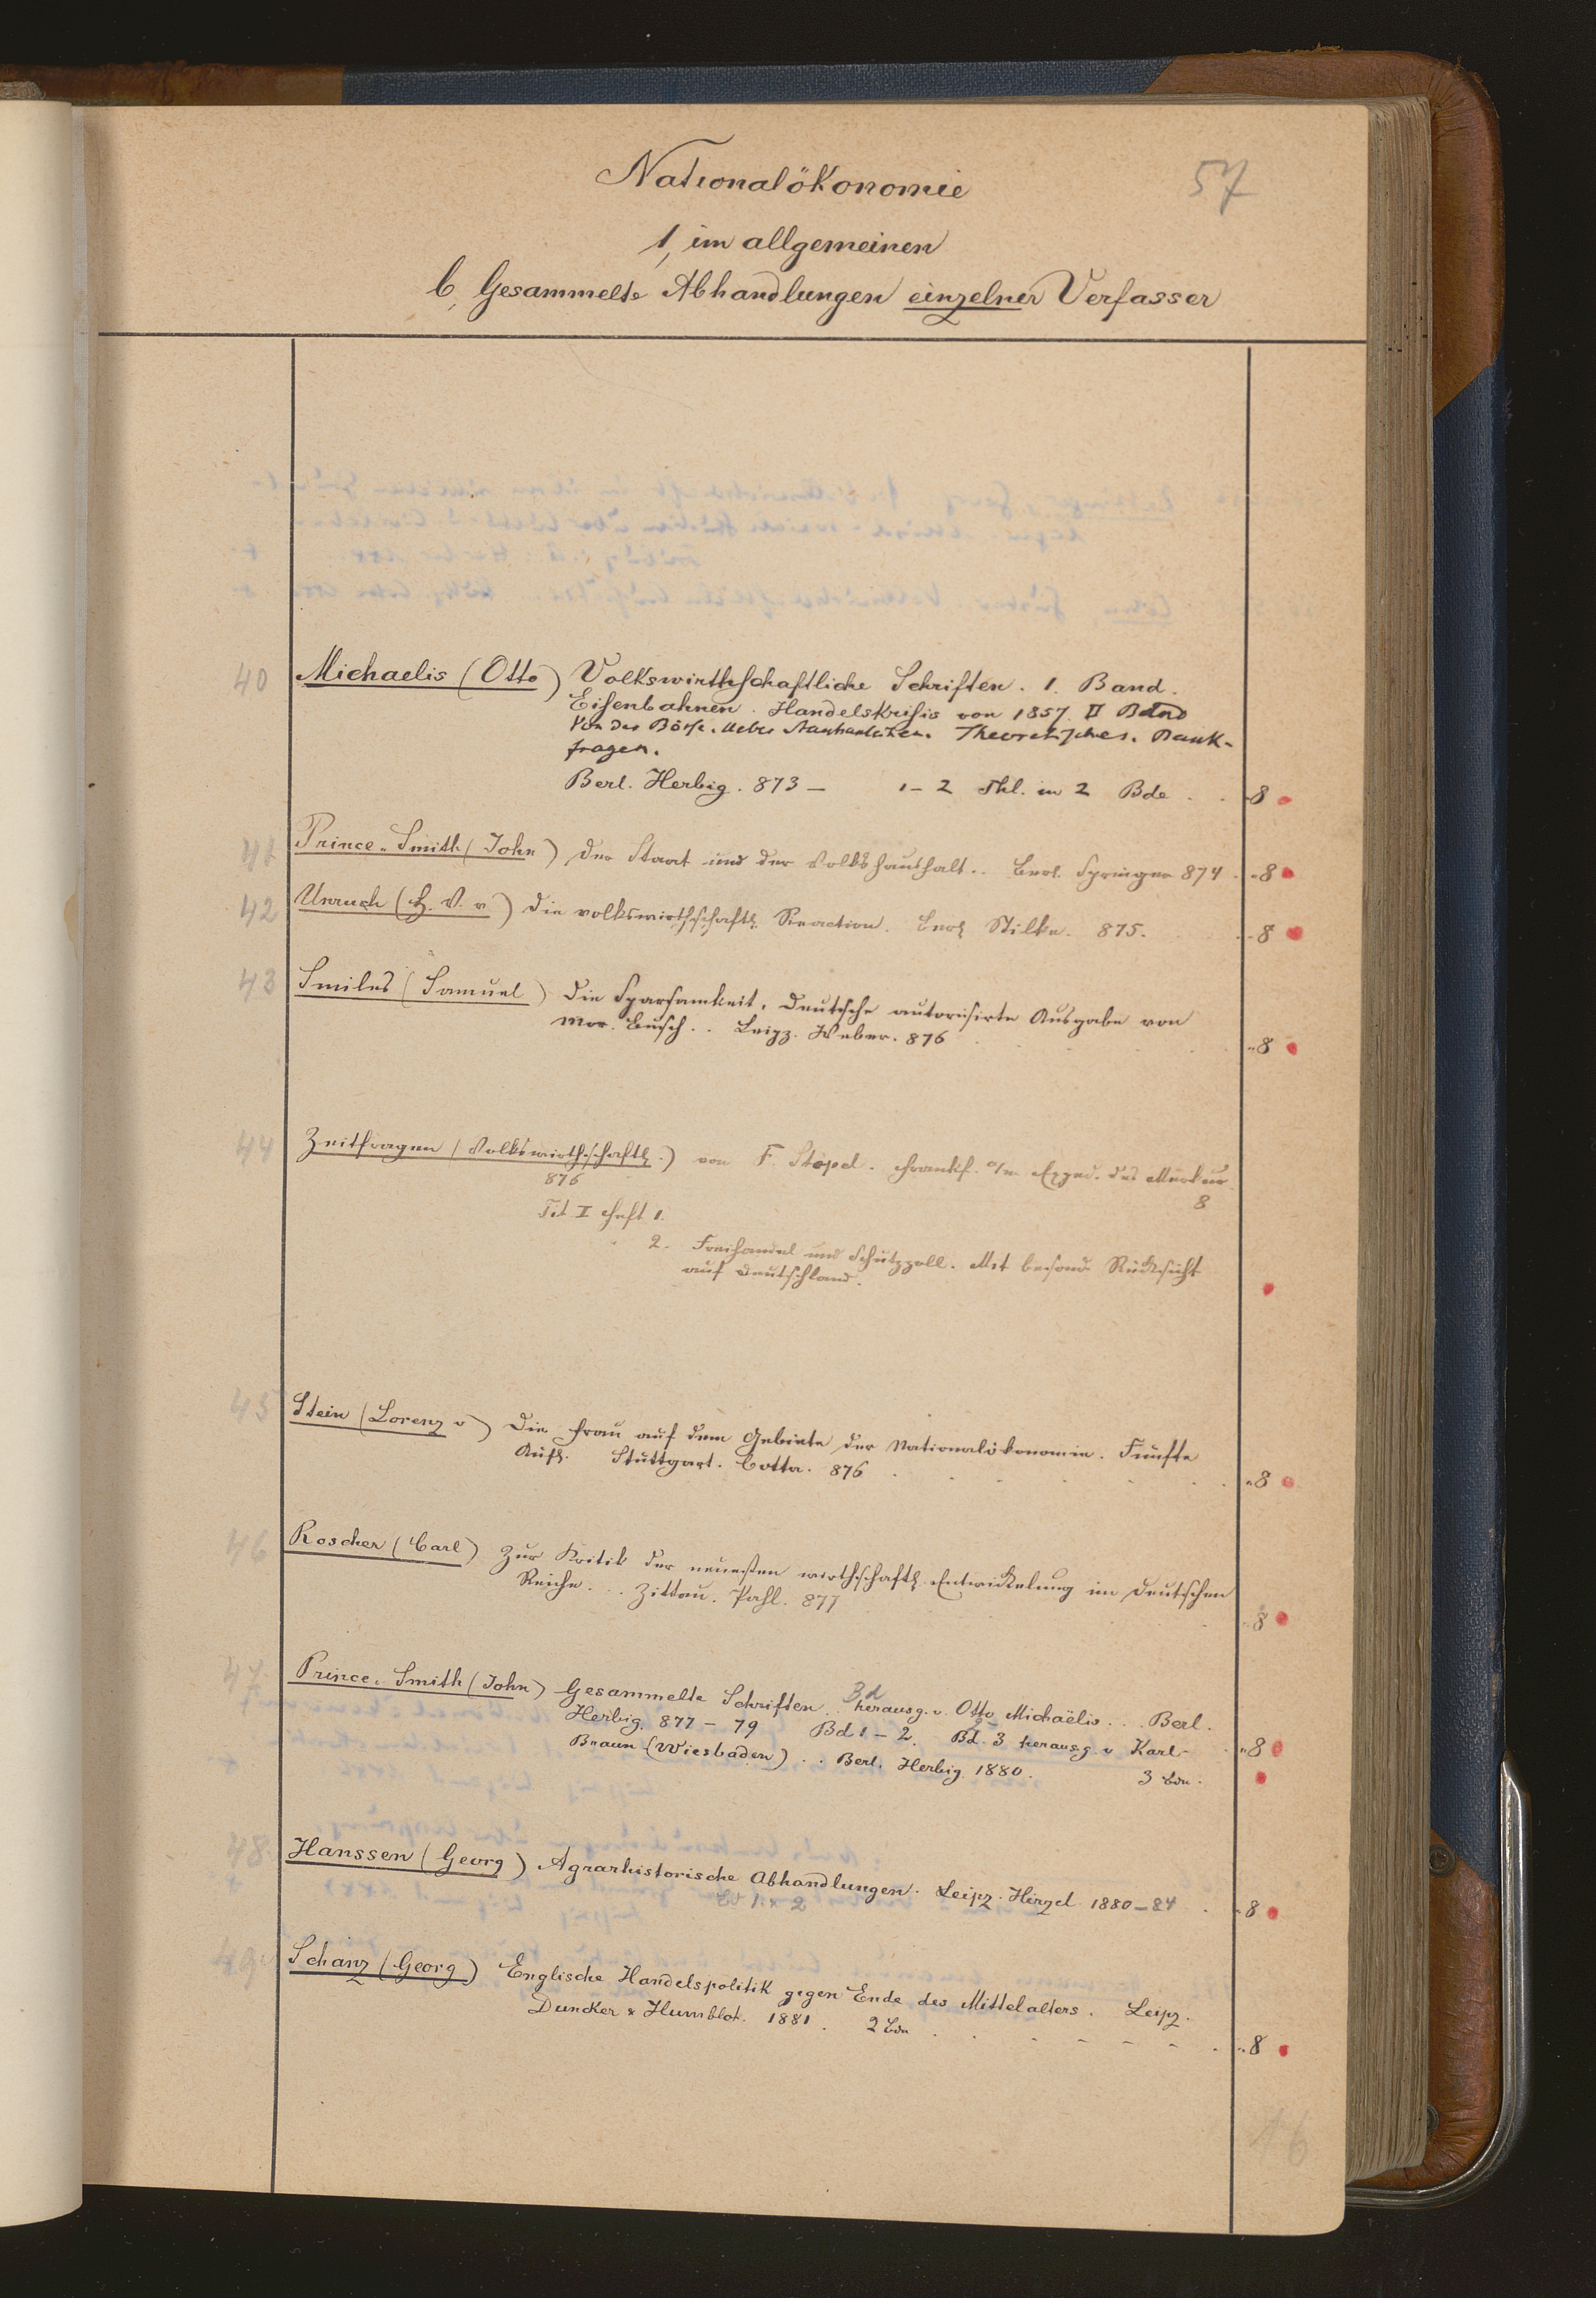 Nationalökonomie
57
1, im allgemeinen
b, Gesammelte Abhandlungen einzelner Verfasser
40 Michaelis (Otto) Volkswirthschaftliche Schriften. 1. Band.
Eisenbahnen. Handelskrisis von 1857. II Band
Von der Börse. Ueber Staatsanleihen. Theoretisches. Bank-
fragen.
Berl. Herbig. 873 — 1-2 Thl. in 2 Bde . . 8
41 Prince-Smith (John) Der Staat und der Volkshaushalt.. Berl. Springer 874 . 8
42 Unruh (H. V. v.) Die volkswirthschaftl. Reaction. Berl. Stilke. 875. 8
43 Smiles (Samuel) Die Sparsamkeit. Deutsche autorisirte Ausgabe von
Mor. Busch.. Leipz. Weber. 876 8
44 Zeitfragen (Volkswirthschaftl.) von F. Stöpel. Frankf. a/m Exped. des Merkur.
876 8
Tit I Heft 1.
2. Freihandel und Schutzzoll. Mit besond. Rücksicht
auf Deutschland.
45 Stein (Lorenz v) Die Frau auf dem Gebiete der Nationalökonomie. Fünfte
Aufl. Stuttgart. Cotta. 876 8
46 Roscher (Carl) Zur Kritik der neuesten wirthschaftl. Entwickelung im Deutschen
Reiche. .. Zittau. Pahl. 877 8
47 Prince-Smith (John) Gesammelte Schriften. Bd herausg. v. Otto Michaëlis... Berl.
Herbig. 877 - 79 Bd 1-2. Bd. 3 herausg. v Karl 8
Braun (Wiesbaden) .. Berl. Herbig. 1880. 3 Bde.
48 Hanssen (Georg) Agrarhistorische Abhandlungen. Leipz. Hirzel 1880-84 . 8
Bd 1. x 2
49 Schanz (Georg) Englische Handelspolitik gegen Ende des Mittelalters. Leipz.
Duncker & Humblot. 1881. 2 Bde 8
16